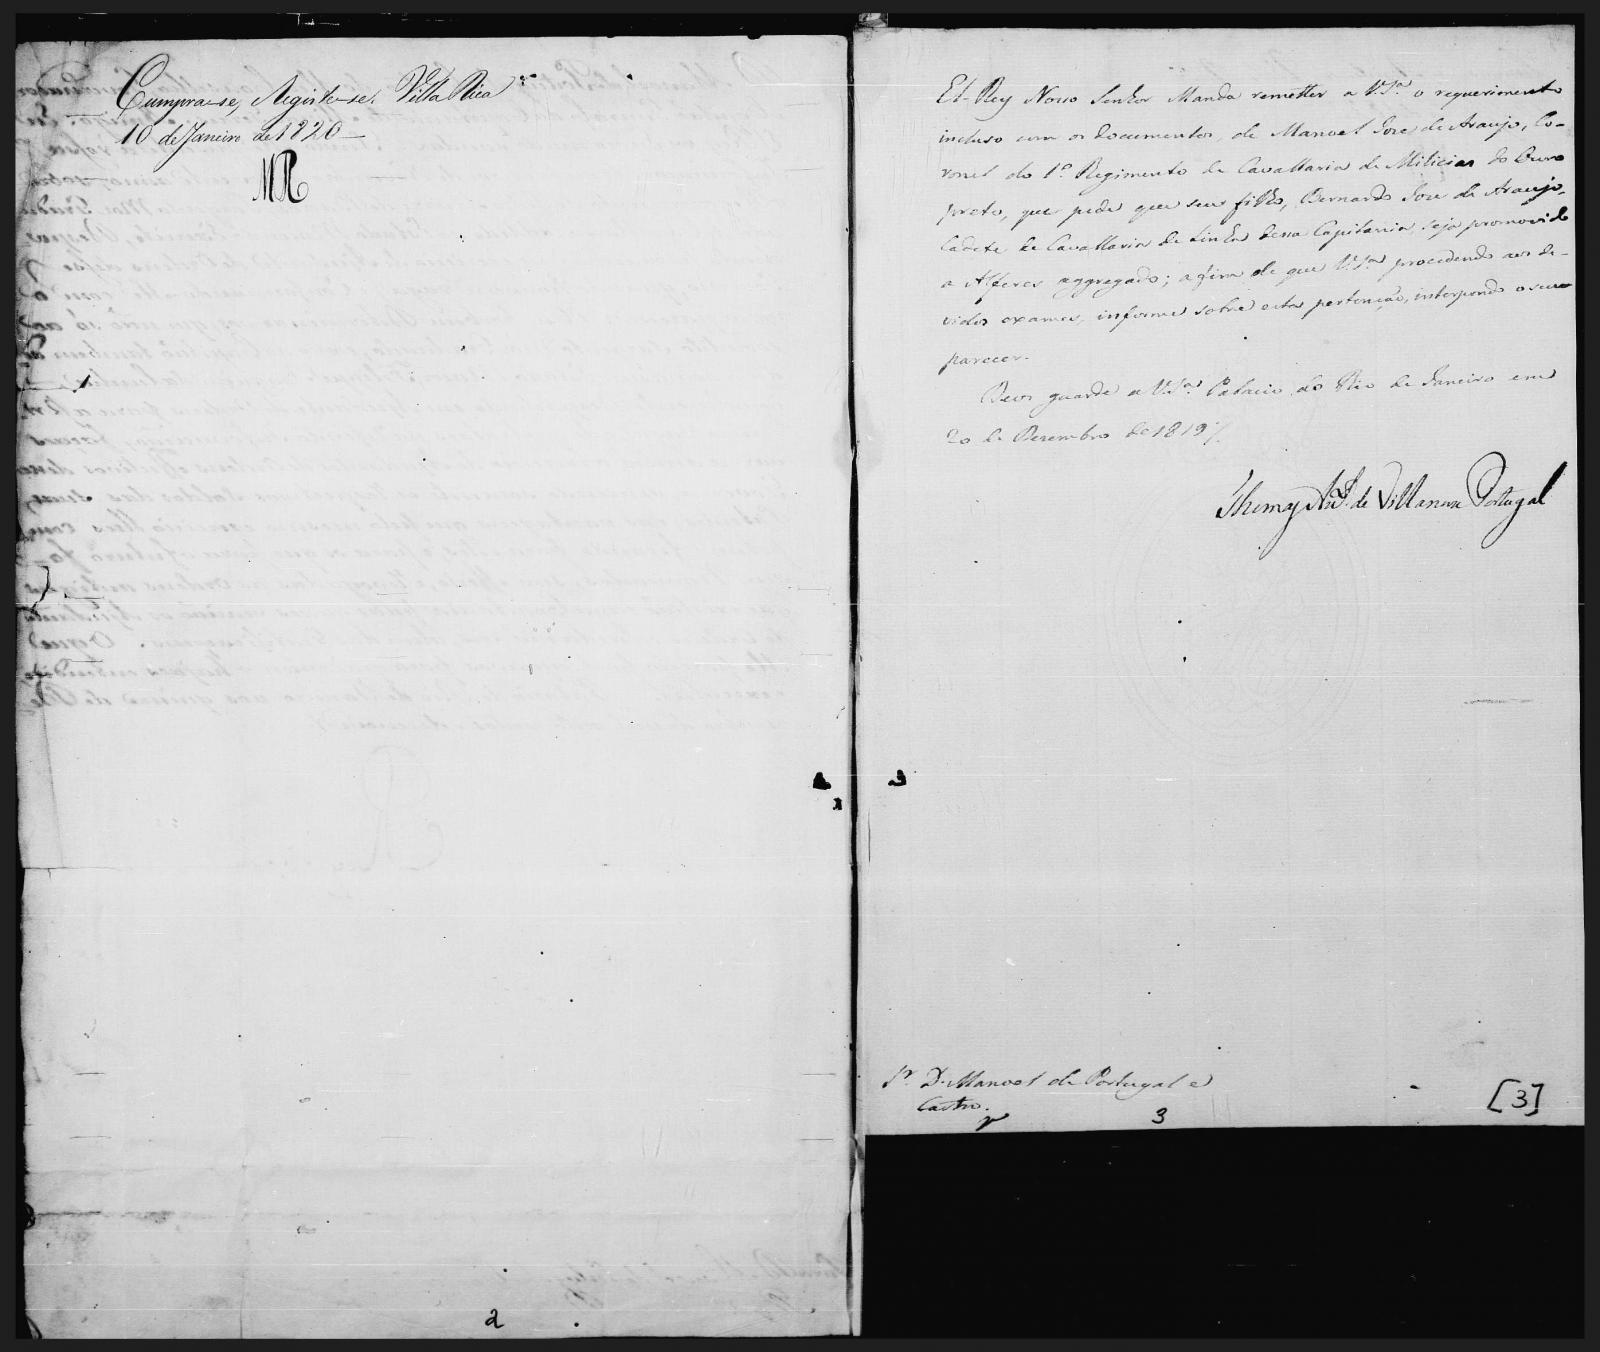 Cumpra-se, Registe-se. Villa Rica
10 de Janeiro de 1820
MR
2
El-Rey Nosso Senhor Manda remetter a V.Sª o requerimento
incluso com os Documentos, de Manoel Jose de Araujo, Co-
ronel do 1º Regimento de Cavallaria de Milicias do Ouro
preto, que pede que seu filho, Bernardo Jose de Araujo,
Cadete de Cavallaria de Linha dessa Capitania, seja promovido
a Alferes aggregado; afim de que V.Sª procedendo aos de-
vidos exames, informe sobre esta pertenção, interpondo o seu
parecer.
Deos guarde a V.Sª Palacio do Rio de Janeiro em
20 de Dezembro de 1819
Thomaz Antº de Villanova Portugal
Sr. D. Manoel de Portugal e
Castro.
3
[3]